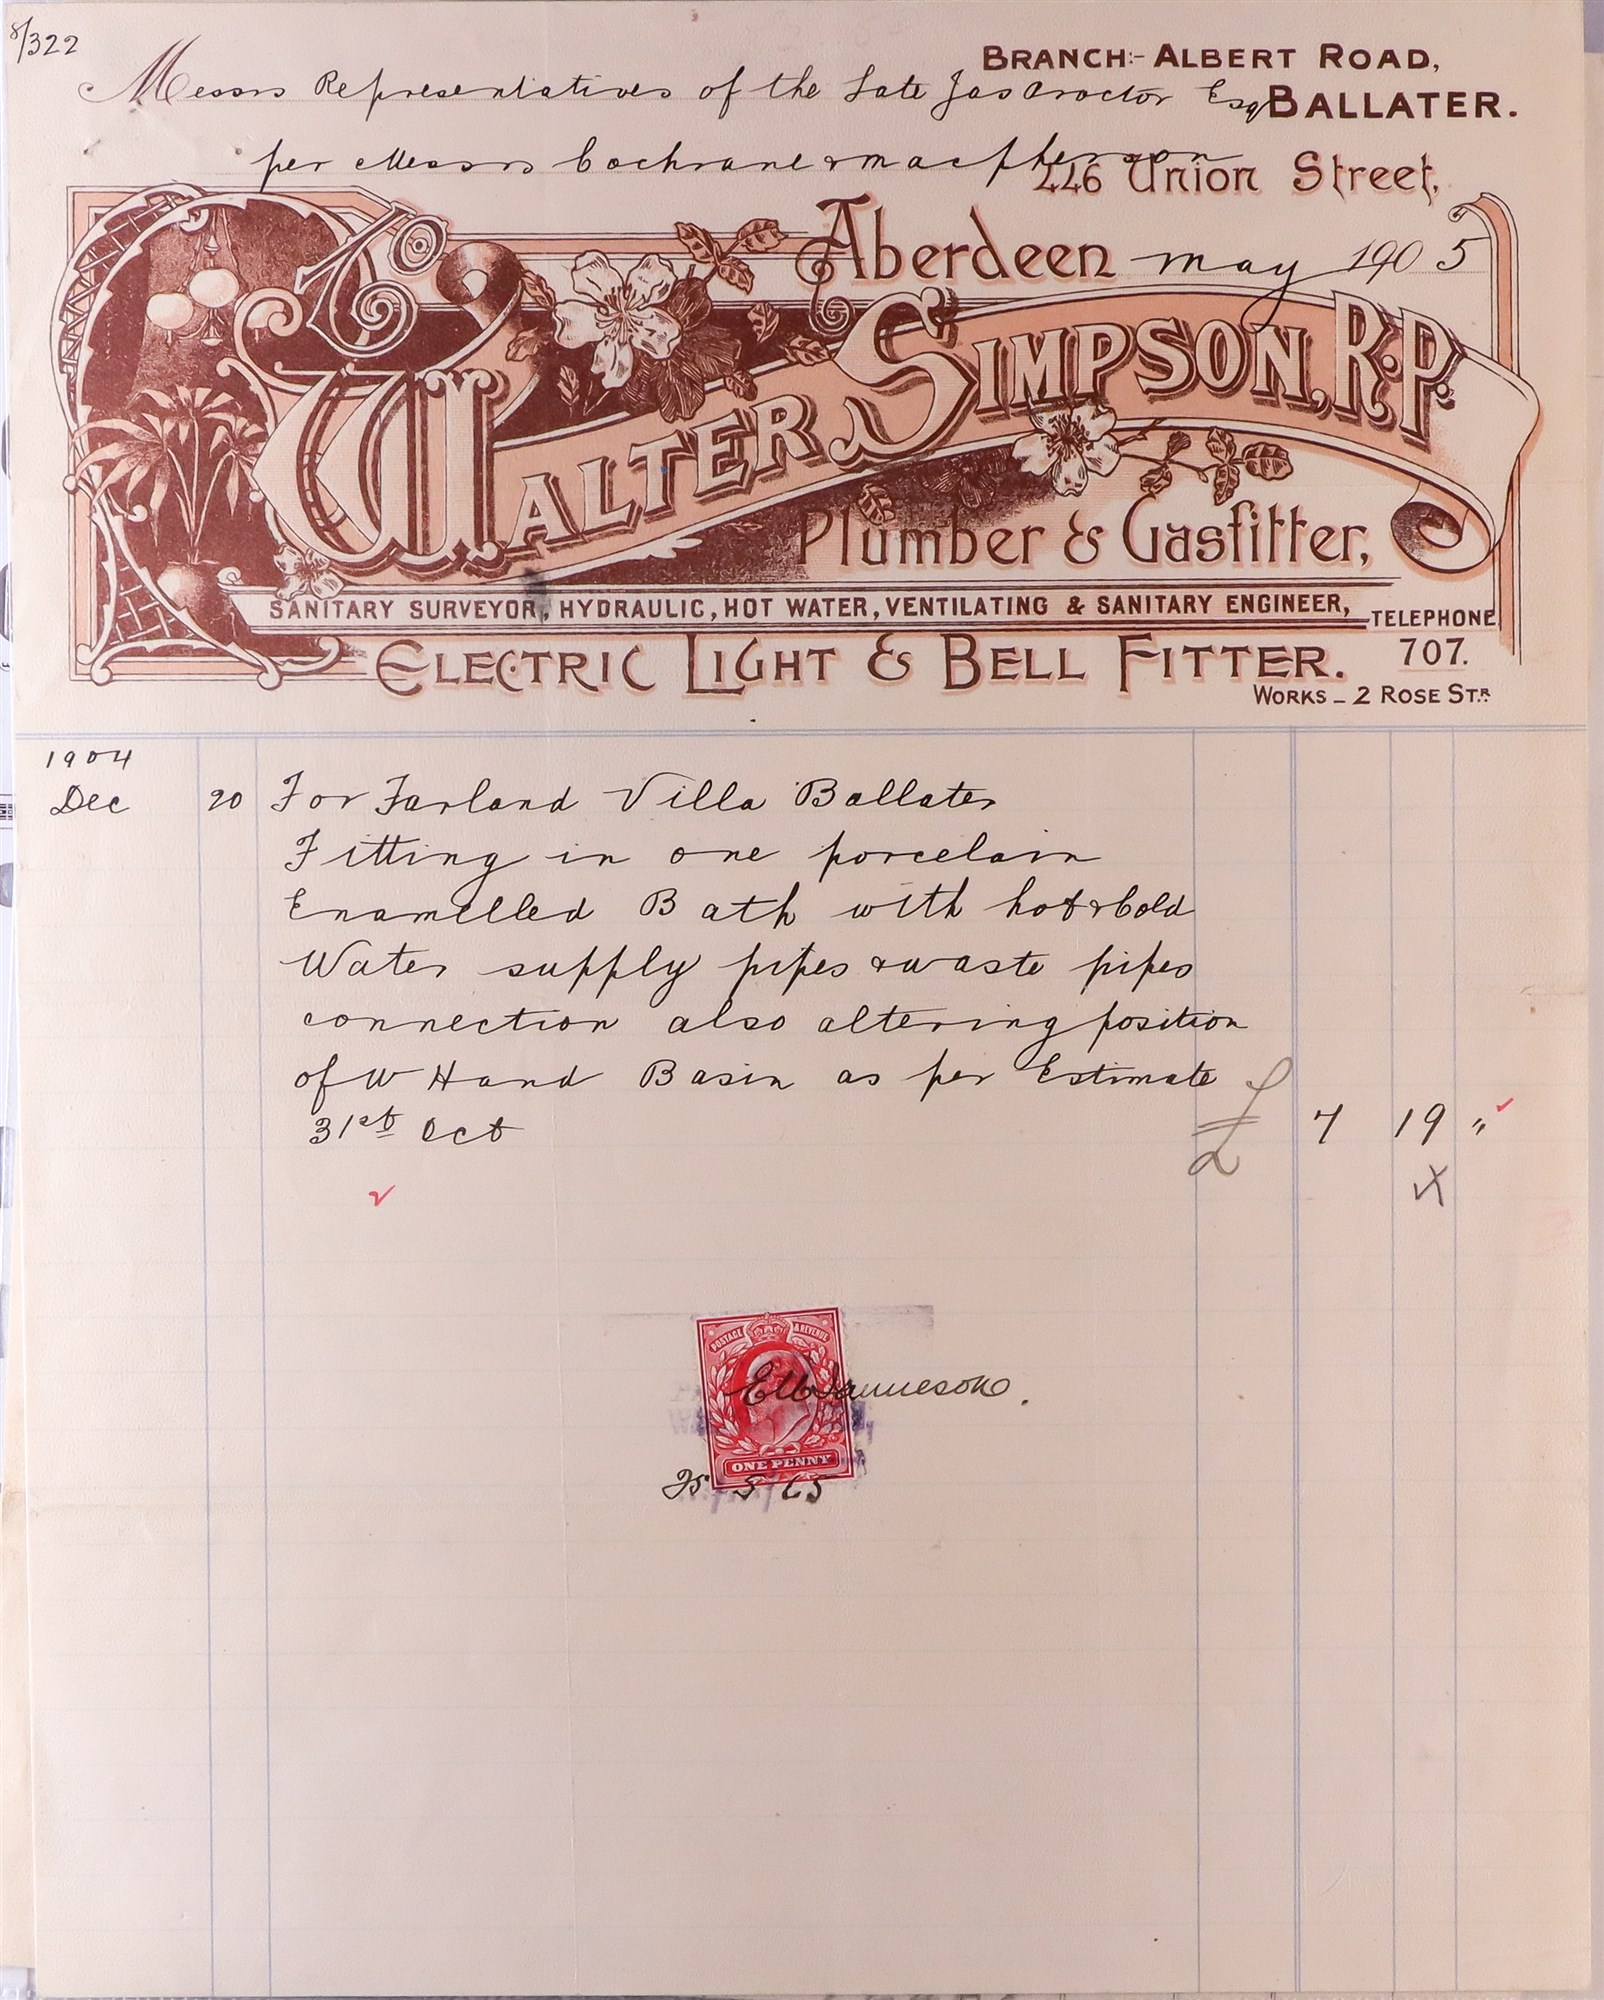 8/322
BRANCH:- ALBERT ROAD,
Messrs Representatives of the Late Jas Proctor Esq BALLATER.
per Messrs Cochrane & Macpherson
226 Union Street,
Aberdeen May 1905
To
WALTER SIMPSON, R.P.
Plumber & Gasfitter,
SANITARY SURVEYOR, HYDRAULIC, HOT WATER, VENTILATING & SANITARY ENGINEER,
TELEPHONE
707.
ELECTRIC LIGHT & BELL FITTER.
WORKS - 2 ROSE STR.
1904
Dec 20 For Farland Villa Ballater
Fitting in one porcelain
Enamelled Bath with hot & Cold
Water supply pipes & waste pipes
connection also altering position
of W Hand Basin as per Estimate
31st Oct £ 7 19 "
POSTAGE & REVENUE
ONE PENNY
5 05